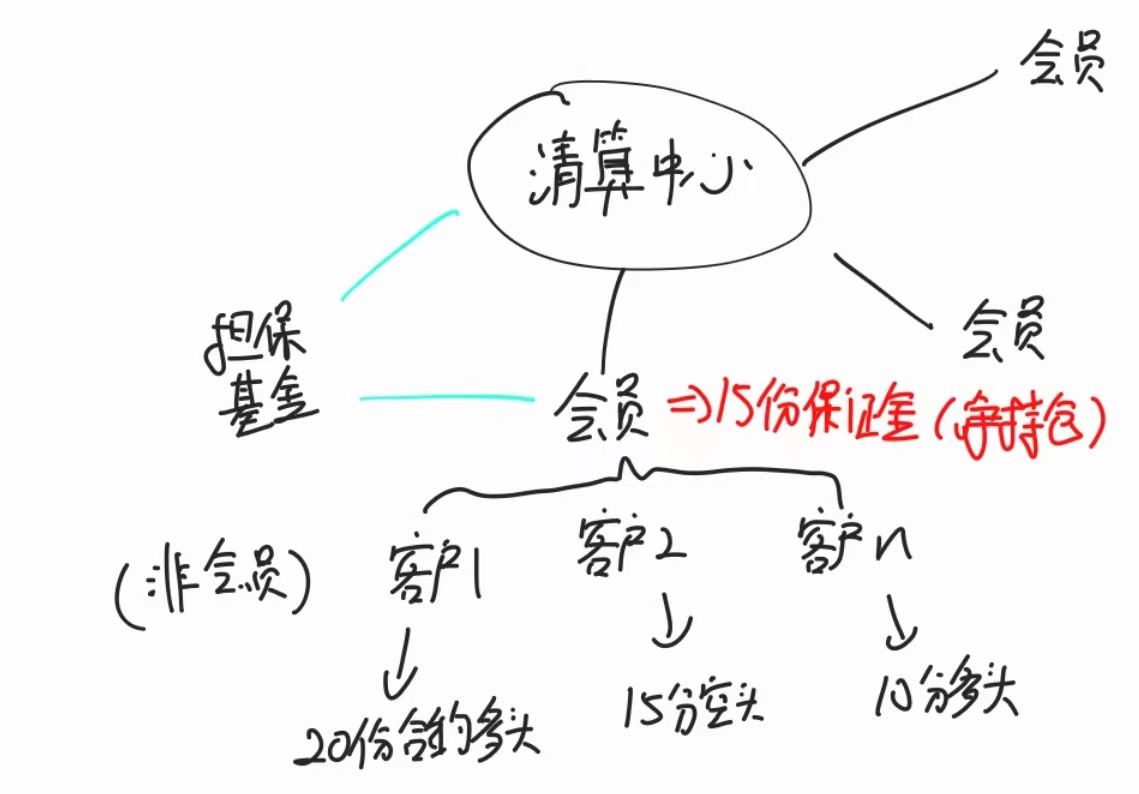 会员
清算中心
担保
基金
会员
会员 => 15份保证金(净持仓)
(非会员)
客户1
客户2
客户n
20份合约多头
15分空头
10分多头